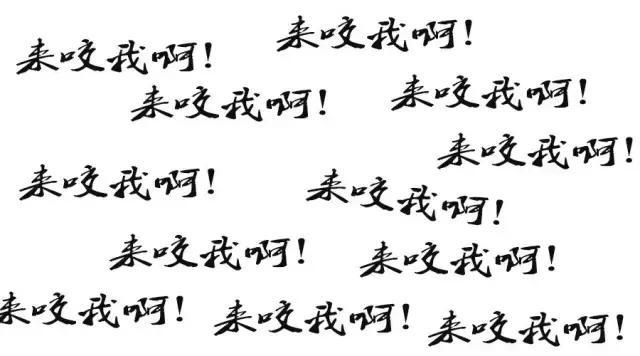 来咬我啊!
来咬我啊!
来咬我啊!
来咬我啊!
来咬我啊!
来咬我啊!
来咬我啊!
来咬我啊!
来咬我啊!
来咬我啊!
来咬我啊!
来咬我啊!